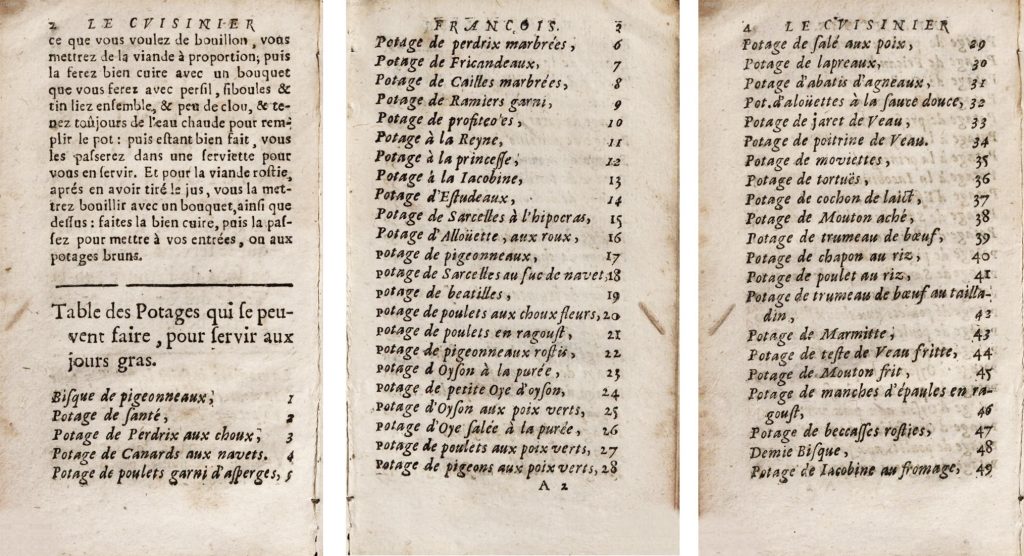 2 LE CVISINIER
ce que vous voulez de bouillon, vous
mettrez de la viande à proportion; puis
la ferez bien cuire avec un bouquet
que vous ferez avec persil, siboules &
tin liez ensemble, & peu de clou, & te-
nez toûjours de l'eau chaude pour rem-
plir le pot : puis estant bien fait, vous
les passerez dans une serviette pour
vous en servir. Et pour la viande rostie,
aprés en avoir tiré le jus, vous la met-
trez boüillir avec un bouquet, ainsi que
dessus : faites la bien cuire, puis la pas-
sez pour mettre à vos entrées, ou aux
potages bruns.
Table des Potages qui se peu-
vent faire, pour servir aux
jours gras.
Bisque de pigeonneaux, 1
Potage de santé, 2
Potage de Perdrix aux choux, 3
Potage de Canards aux navets. 4
Potage de poulets garni d'asperges, 5
FRANÇOIS. 3
Potage de perdrix marbrées, 6
Potage de Fricandeaux, 7
Potage de Cailles marbrées, 8
Potage de Ramiers garni, 9
Potage de profiteo'es, 10
Potage à la Reyne, 11
Potage à la princesse, 12
Potage à la Iacobine, 13
Potage d'Estudeaux, 14
Potage de Sarcelles à l'hipocras, 15
Potage d'Alloüette, aux roux, 16
Potage de pigeonneaux, 17
potage de Sarcelles au suc de navet, 18
potage de beatilles, 19
potage de poulets aux choux fleurs, 20
potage de poulets en ragoust, 21
potage de pigeonneaux rostis, 22
potage d'Oyson à la purée, 23
potage de petite Oye d'oyson, 24
Potage d'Oyson aux poix verts, 25
Potage d'Oye salée à la purée, 26
Potage de poulets aux poix verts, 27
Potage de pigeons aux poix verts, 28
A 2
4 LE CVISINIER
Potage de salé aux poix, 29
Potage de lapreaux, 30
Potage d'abatis d'agneaux, 31
Pot. d'aloüettes à la sauce douce, 32
Potage de jaret de Veau, 33
Potage de poitrine de Veau. 34
Potage de moviettes, 35
Potage de tortuës, 36
Potage de cochon de laict, 37
Potage de Mouton aché, 38
Potage de trumeau de bœuf, 39
Potage de chapon au riz, 40
Potage de poulet au riz, 41
Potage de trumeau de bœuf au tailla-
din, 42
Potage de Marmitte, 43
Potage de teste de Veau fritte, 44
Potage de Mouton frit, 45
Potage de manches d'épaules en ra-
goust, 46
Potage de beccasses rosties, 47
Demie Bisque, 48
Potage de Iacobine au fromage, 49